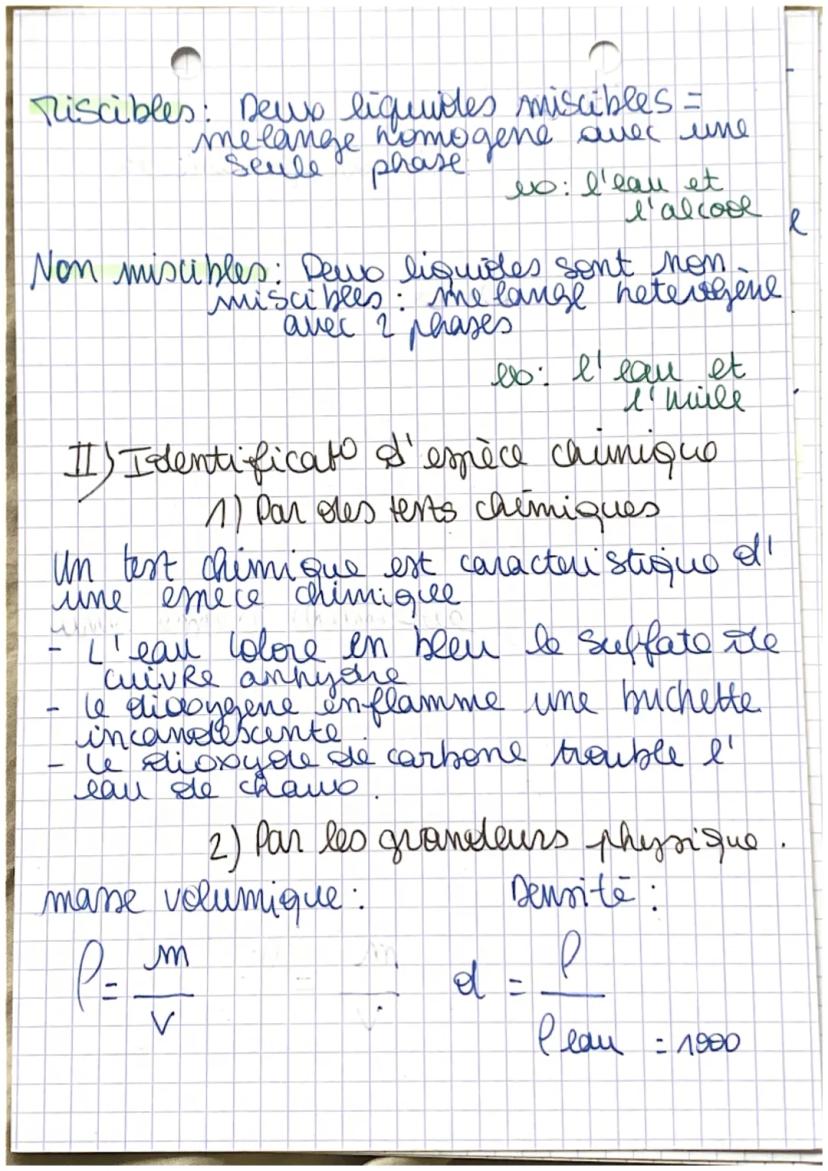 Miscibles : Deux liquides miscibles =
mélange homogène avec une
seule phase
ex : l'eau et
l'alcool
Non miscibles : Deux liquides sont non
miscibles : mélange hétérogène
avec 2 phases
ex : l'eau et
l'huile
II) Identificat° d'espèce chimique
1) Par des tests chimiques
Un test chimique est caractéristique d'
une espèce chimique
- L'eau colore en bleu le sulfate de
cuivre anhydre
- le dioxygène enflamme une buchette
incandescente
- le dioxyde de carbone trouble l'
eau de chaux.
2) Par les grandeurs physique.
masse volumique : Densité :
ρ = m / V d = ρ / ρ eau = 1000